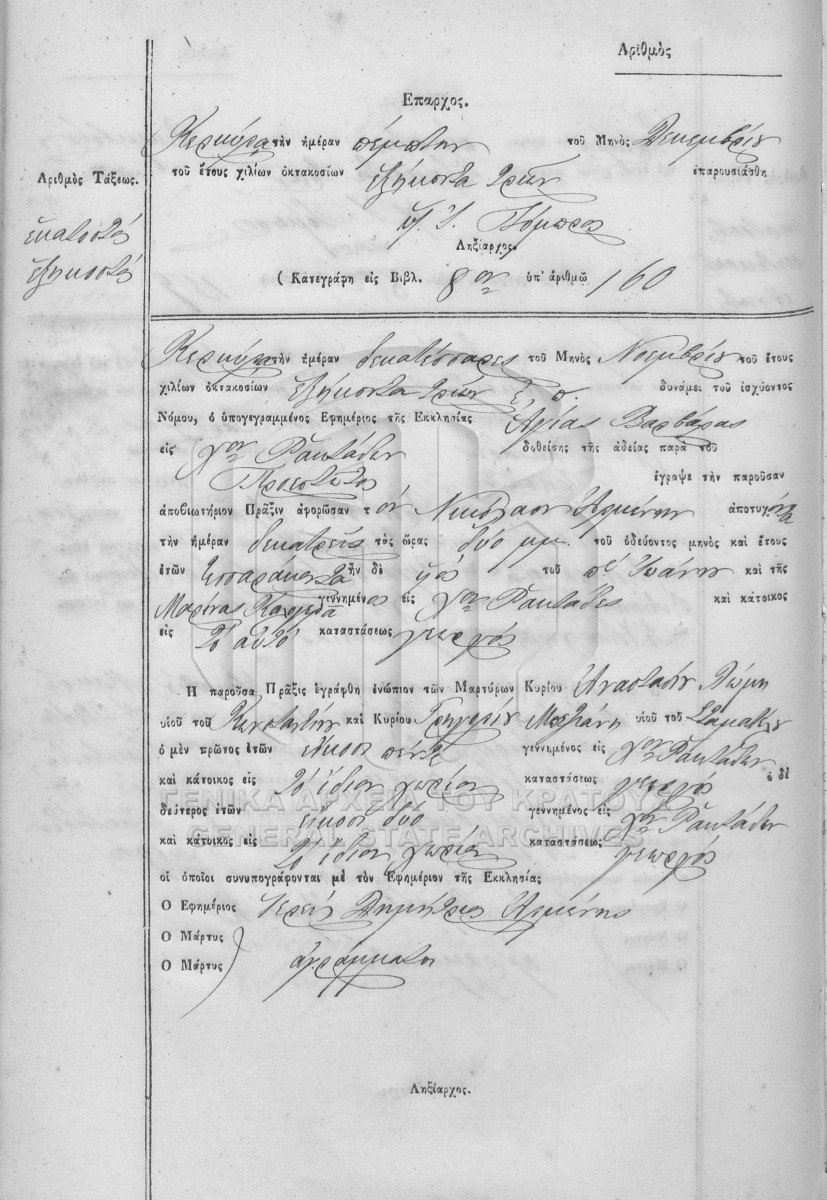 Αριθμὸς
Επαρχος.
Κερκύρα τὴν ἡμέραν πέμπτην τοῦ Μηνὸς Δεκεμβρίου
Αριθμὸς Τάξεως.
τοῦ ἔτους χιλίων ὀκτακοσίων ἑξήκοντα τριῶν ἐπαρουσιάσθη
ἑκατοστὸς
ἑξηκοστὸς
Ληξίαρχος.
( Κατεγράφη εἰς Βιβλ. 8ον ὑπ' ἀριθμῷ 160
Κερκύρα τὴν ἡμέραν δεκατέσσαρες τοῦ Μηνὸς Νοεμβρίου τοῦ ἔτους
χιλίων ὀκτακοσίων ἑξήκοντα τριῶν ἔ. π. δυνάμει τοῦ ἰσχύοντος
Νόμου, ὁ ὑπογεγραμμένος Εφημέριος τῆς Εκκλησίας Αγίας Βαρβάρας
εἰς χον Ραυτάδων δοθείσης τῆς ἀδείας παρὰ τοῦ
Προεστῶτος ἔγραψε τὴν παροῦσαν
ἀποβιωτήριον Πρᾶξιν ἀφορῶσαν τὸν Νικόλαον Αρμένην ἀποτυχόντα
τὴν ἡμέραν δεκατρεῖς τὰς ὥρας δύο μμ. τοῦ ὁδεύοντος μηνὸς καὶ ἔτους
ἐτῶν τεσσαράκοντα τὴν δὲ υἱὸς τοῦ π. Ἰωάννου καὶ τῆς
Μαρίνας γεννημένος εἰς χον Ραυτάδες καὶ κάτοικος
εἰς τὸ αὐτὸ καταστάσεως γεωργός
Η παροῦσα Πρᾶξις ἐγράφθη ἐνώπιον τῶν Μαρτύρων Κυρίου Αναστασίου
υἱοῦ τοῦ Κωνσταντίνου καὶ Κυρίου Γρηγορίου υἱοῦ τοῦ Σταματίου
ὁ μὲν πρῶτος ἐτῶν εἴκοσι πέντε γεννημένος εἰς χον Ραυτάδων
καὶ κάτοικος εἰς τὸ ἴδιον χωρίον καταστάσεως γεωργός ὁ δὲ
ΓΕΝΙΚΑ ΑΡΧΕΙΑ ΤΟΥ ΚΡΑΤΟΥΣ
δεύτερος ἐτῶν εἴκοσι δύο γεννημένος εἰς χον Ραυτάδων
GENERAL STATE ARCHIVES
καὶ κάτοικος εἰς τὸ ἴδιον χωρίον καταστάσεως γεωργός
οἱ ὁποῖοι συνυπογράφονται μὲ τὸν Εφημέριον τῆς Εκκλησίας
Ο Εφημέριος Ἱερεὺς Δημήτριος Αρμένης
Ο Μάρτυς
Ο Μάρτυς ἀγράμματοι
Ληξίαρχος.